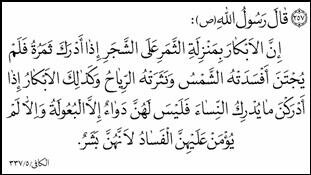 ٢٥٧ قَالَ رَسُولُ اللهِ (ص):
إِنَّ الْأَبْكَارَ بِمَنْزِلَةِ الثَّمَرِ عَلَى الشَّجَرِ إِذَا أَدْرَكَ ثَمَرُهُ فَلَمْ
يُجْتَنَ أَفْسَدَتْهُ الشَّمْسُ وَنَثَرَتْهُ الرِّيَاحُ وَكَذَلِكَ الْأَبْكَارُ إِذَا
أَدْرَكْنَ مَا يُدْرِكُ النِّسَاءُ فَلَيْسَ لَهُنَّ دَوَاءٌ إِلَّا الْبُعُولَةُ وَإِلَّا لَمْ
يُؤْمَنْ عَلَيْهِنَّ الْفَسَادُ لِأَنَّهُنَّ بَشَرٌ.
الكافي/٥/٣٣٧